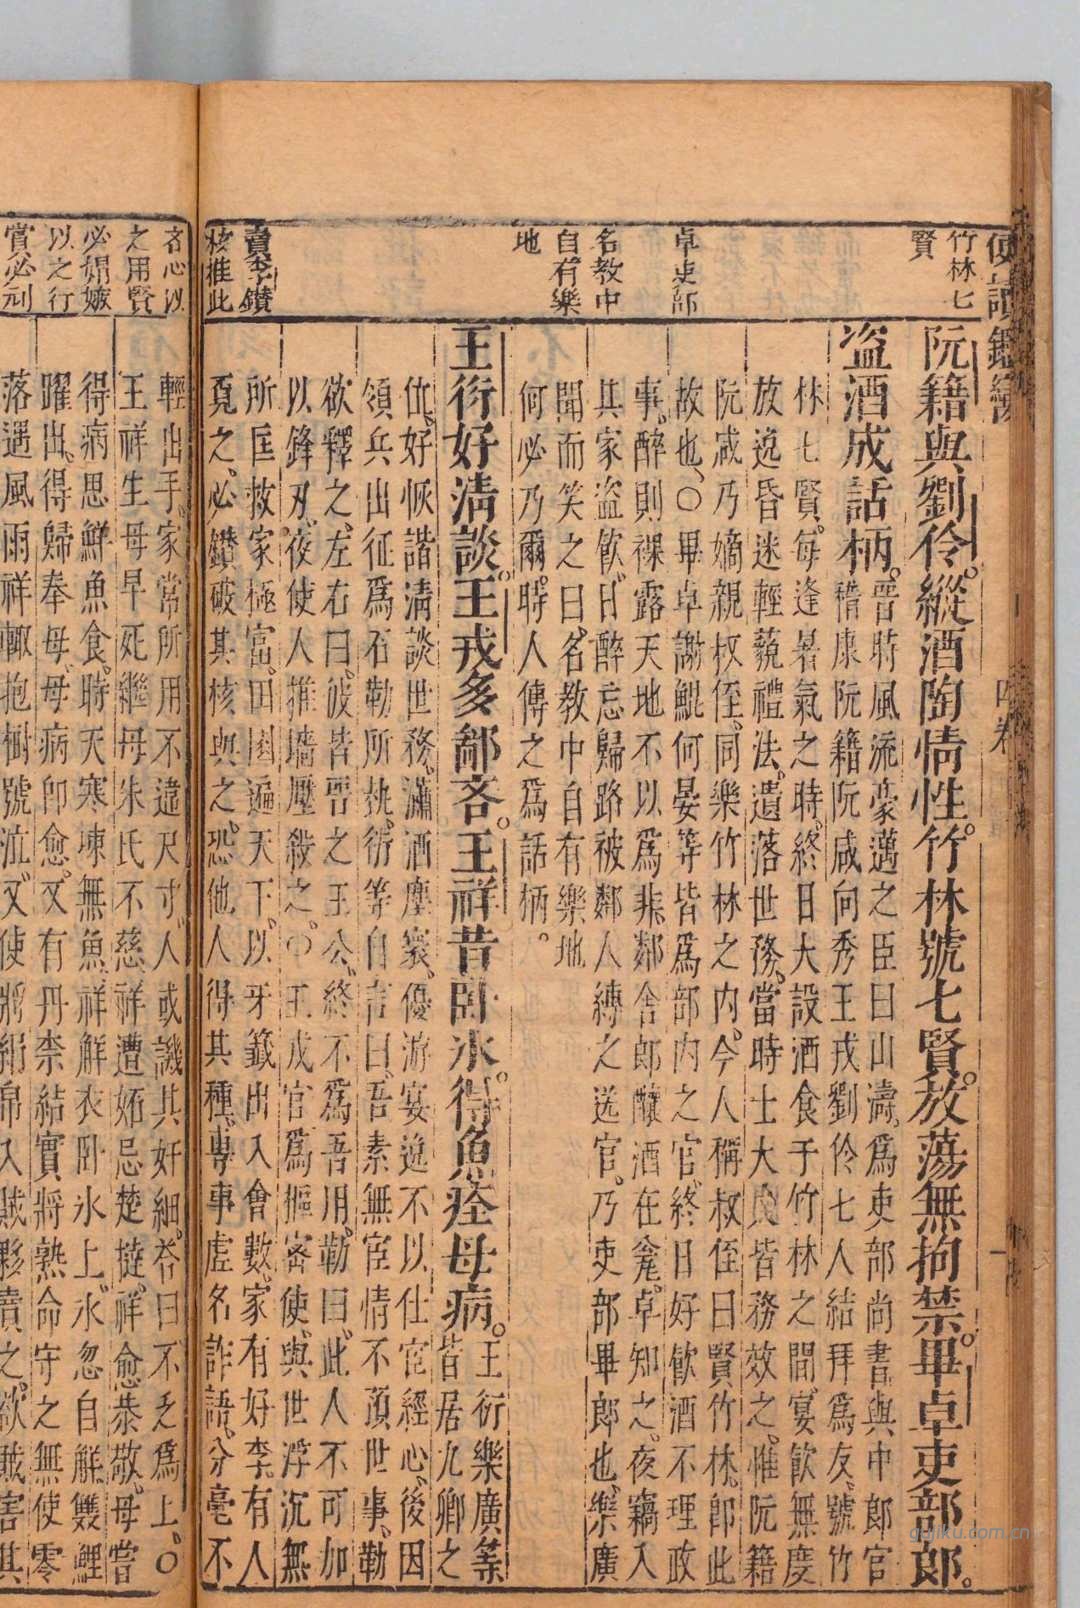 便讀鑑
四卷
竹林七
賢
卓吏部
名教中
自有樂
地
賣李鑽
核推此
吝心以
之用賢
必媢嫉
以之行
賞必刓
阮籍與劉伶。縱酒陶情性。竹林號七賢。放蕩無拘禁。畢卓吏部郎。
盜酒成話柄。晉時風流豪邁之臣曰山濤。爲吏部尚書。與中郎官
嵇康阮籍阮咸向秀王戎劉伶七人結拜爲友。號竹
林七賢。每逢暑氣之時。終日大設酒食于竹林之間。宴飲無度
放逸昏迷輕藐禮法。遺落世務。當時士大夫皆務效之。惟阮籍
阮咸乃嫡親叔侄。同樂竹林之內。今人稱叔侄曰賢竹林。卽此
故也。〇畢卓謝鯤何晏等皆爲部內之官。終日好飲酒不理政
事。醉則裸露天地不以爲非。鄰舍郎釀酒在瓮。卓知之。夜竊入
其家盜飲。日醉忘歸路被鄰人縛之送官。乃吏部畢郎也。樂廣
聞而笑之曰。名教中自有樂地
何必乃爾。時人傳之爲話柄。
王衍好淸談。王戎多鄙吝。王祥昔臥氷。得魚痊母病。王衍樂廣等
皆居九卿之
位。好恢諧淸談世務。瀟酒塵寰。優游宴逸不以仕宦經心。後因
領兵出征爲石勒所執。衍等自言曰。吾素無宦情不預世事。勒
欲釋之。左右曰。彼皆晋之王公。終不爲吾用。勒曰。此人不可加
以鋒刃。夜使人推墻壓殺之。〇王戎官爲樞密使。與世浮沉無
所匡救家極富。田園遍天下。以牙籤出入會數。家有好李。有人
覓之。必鑽破其核與之。恐他人得其種。專事虛名詐語。分毫不
輕出手。家常所用不違尺寸。人或譏其奸細。答曰不乏爲上。〇
王祥生母早死繼母朱氏不慈。祥遭妬忌楚撻。祥愈恭敬。母嘗
得病思鮮魚食。時天寒凍無魚。祥解衣臥氷上。氷忽自解雙鯉
躍出。得歸奉母。母病卽愈。又有丹柰結實將熟命守之無使零
落。遇風雨祥輙抱樹號泣。又使將綿帛入賊夥賣之。欲賊害其